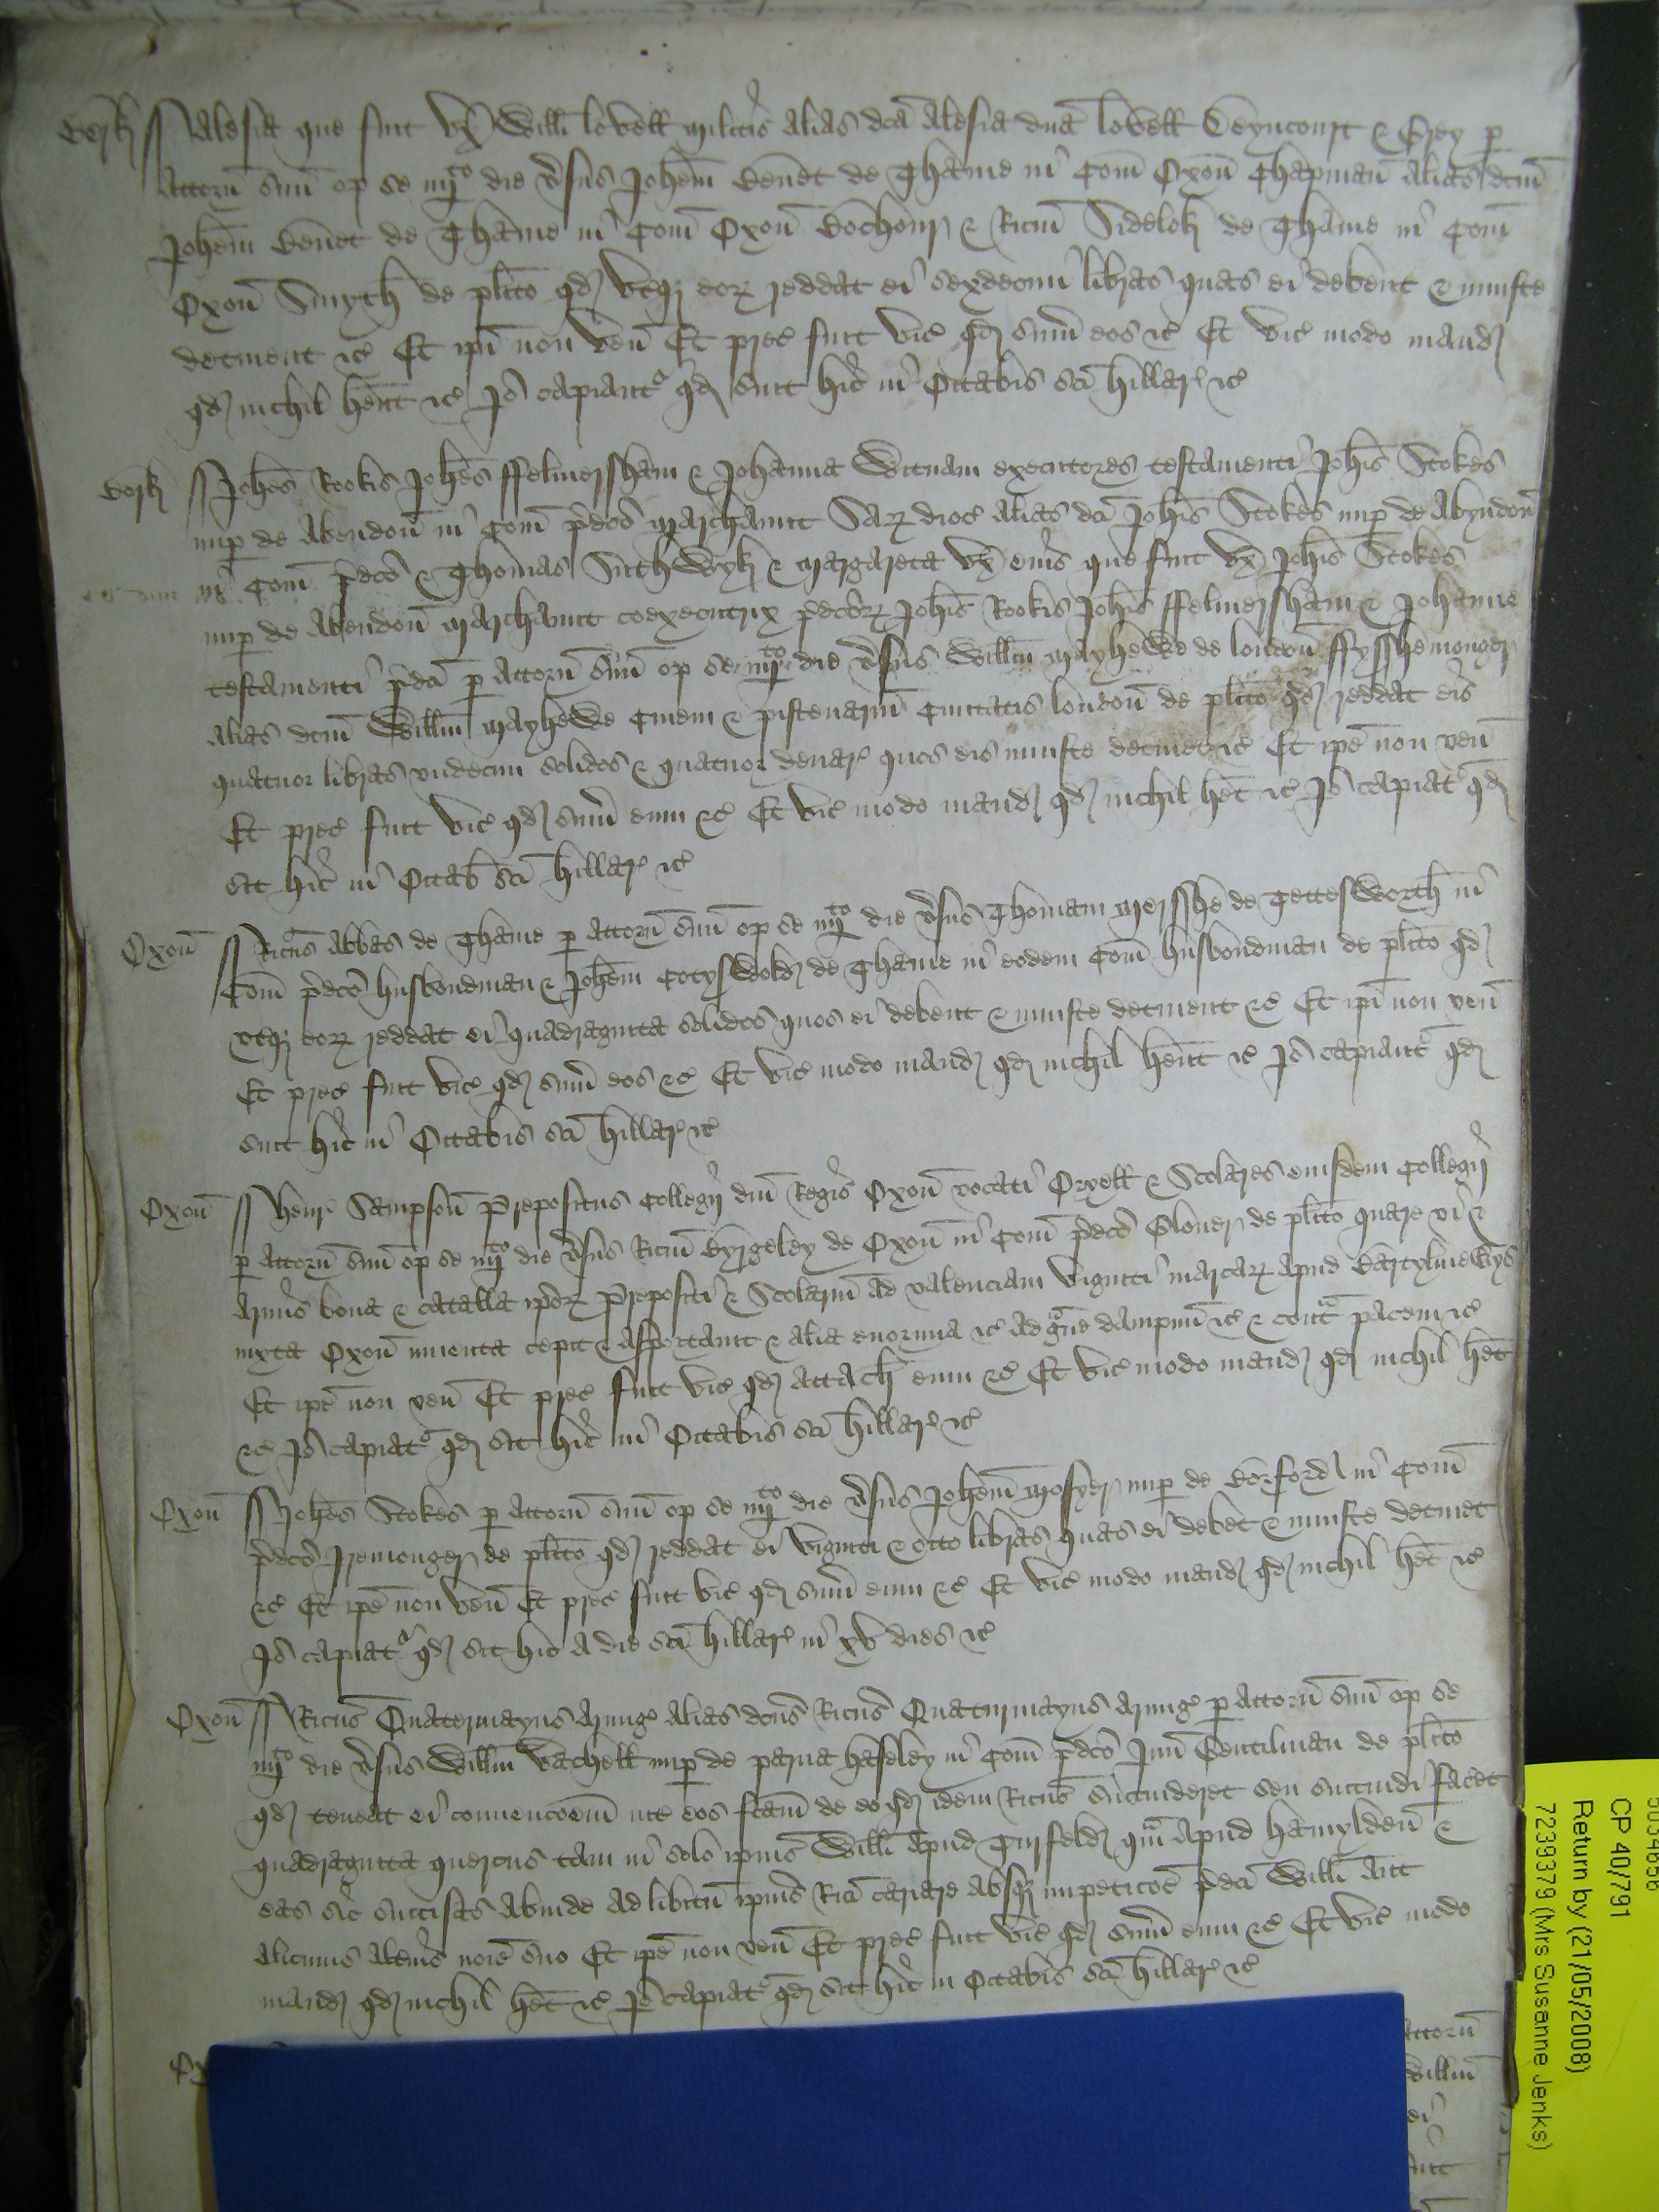 Berk Alesia que fuit ux Willi lovell militis alias dca Alesia dna lovell Deyncourt & Grey p
Attorn suu op se iiijto die vsus Johem Benet de Thame in Com Oxon Chapman alias dcm
Johem Benet de Thame in Com Oxon Bochour & Ricm Sidelok de Thame in Com
Oxon Smyth de plito qd utq eor reddat ei sexdecim libras quas ei debent & iniuste
detinent &c Et ipi non ven Et prec fuit vic qd sum eos &c Et vic modo mand
qd nichil hent &c Io capiant qd sint hic in Octabis sci hillar &c
Berk Johes Rookis Johes ffelmersham & Johanna executores testamenti Johis Stokes
nup de Abendon in Com pdco marchaunt Sar dioc alias dci Johis Stokes nup de Abyndon
in Com pdco & Thomas Suthwyk & Margareta ux eius que fuit ux Johis Stokes
nup de Abendon marchaunt coexecutrix pdcor Johis Rookis Johis ffelmersham & Johanne
testamenti pdci p attorn suu op se iiijto die vsus Willm Mayhewe de london ffysshemonger
alias dcm Willm Mayhewe Ciuem & pistenarium Ciuitatis london de plito qd reddat eis
quatuor libras undecim solidos & quatuor denar quos eis iniuste detinet &c Et ipe non ven
Et prec fuit vic qd sum eum &c Et vic modo mand qd nichil het &c Io capiat qd
sit hic in Octab sci hillar &c
Oxon Ricus Abbas de Thame p attorn suu op se iiijto die vsus Thomam Mersshe de Tettesworth in
Com pdco husbondman & Johem Cotyswold de Thame in eodem Com husbondman de plito qd
utq eor reddat ei quadraginta solidos quos ei debent & iniuste detinent &c Et ipi non ven
Et prec fuit vic qd sum eos &c Et vic modo mand qd nichil hent &c Io capiant qd
sint hic in Octabis sci hillar &c
Oxon henr Sampson Prepositus Collegij dni Regis Oxon vocati Oryell & Scolares eiusdem Collegij
p attorn suu op se iiijto die vsus Ricm Byrgeley de Oxon in Com pdco Glover de plito quare vi &
armis bona & catalla ipor Prepositi & Scolarium ad valenciam viginti marcar apud Bartylmewys
iuxta Oxon inuenta cepit & asportauit & alia enormia &c ad graue dampnu &c & contra pacem &c
Et ipe non ven Et prec fuit vic qd attach eum &c Et vic modo mand qd nichil het
&c Io capiat qd sit hic in Octabis sci hillar &c
Oxon Johes Stokes p attorn suu op se iiijto die vsus Johem Mosyer nup de Borford in Com
pdco Iremonger de plito qd reddat ei viginti & octo libras quas ei debet & iniuste detinet
&c Et ipe non ven Et prec fuit vic qd sum eum &c Et vic modo mand qd nichil het &c
Io capiat qd sit hic a die sci hillar in xv dies &c
Oxon Ricus Quatermayns Armig alias dcus Ricus Quaturmayns Armig p attorn suu op se
iiijto die vsus Willm Vachell nup de parua haseley in Com pdco Jun Gentilman de plito
qd teneat ei conuencoem int eos fcam de eo qd idem Ricus succideret seu succidi facet
quadraginta quercus tam in solo ipius Willi apud Tursfeld qm apud hamylden &
eas sic succisas abinde ad libitu ipius Rici cariare absq impeticoe pdci Willi aut
alicuius alterius noie suo Et ipe non ven Et prec fuit vic qd sum eum &c Et vic modo
mand qd nichil het &c Io capiat qd sit hic in Octabis sci hillar &c
Ox attorn
Willm
ei
fuit
CP 40/791
Return by (21/05/2008)
7239379 (Mrs Susanne Jenks)